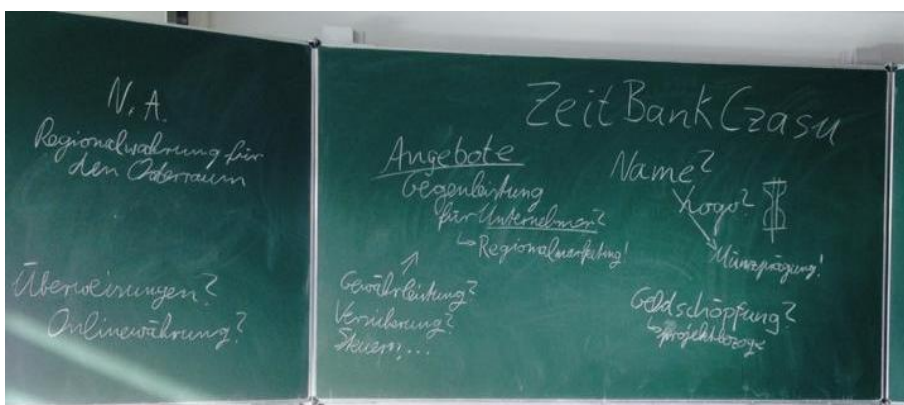 N.A.
Regionalwährung für
den Oderraum
Überweisungen?
Onlinewährung?
ZeitBankCzasu
Angebote
Gegenleistung
für Unternehmen?
↳ Regionalmarketing!
Gewährleistung?
Versicherung?
Steuern,...
Name?
Logo?
Münzprägung!
Geldschöpfung?
↳ projektbezoge